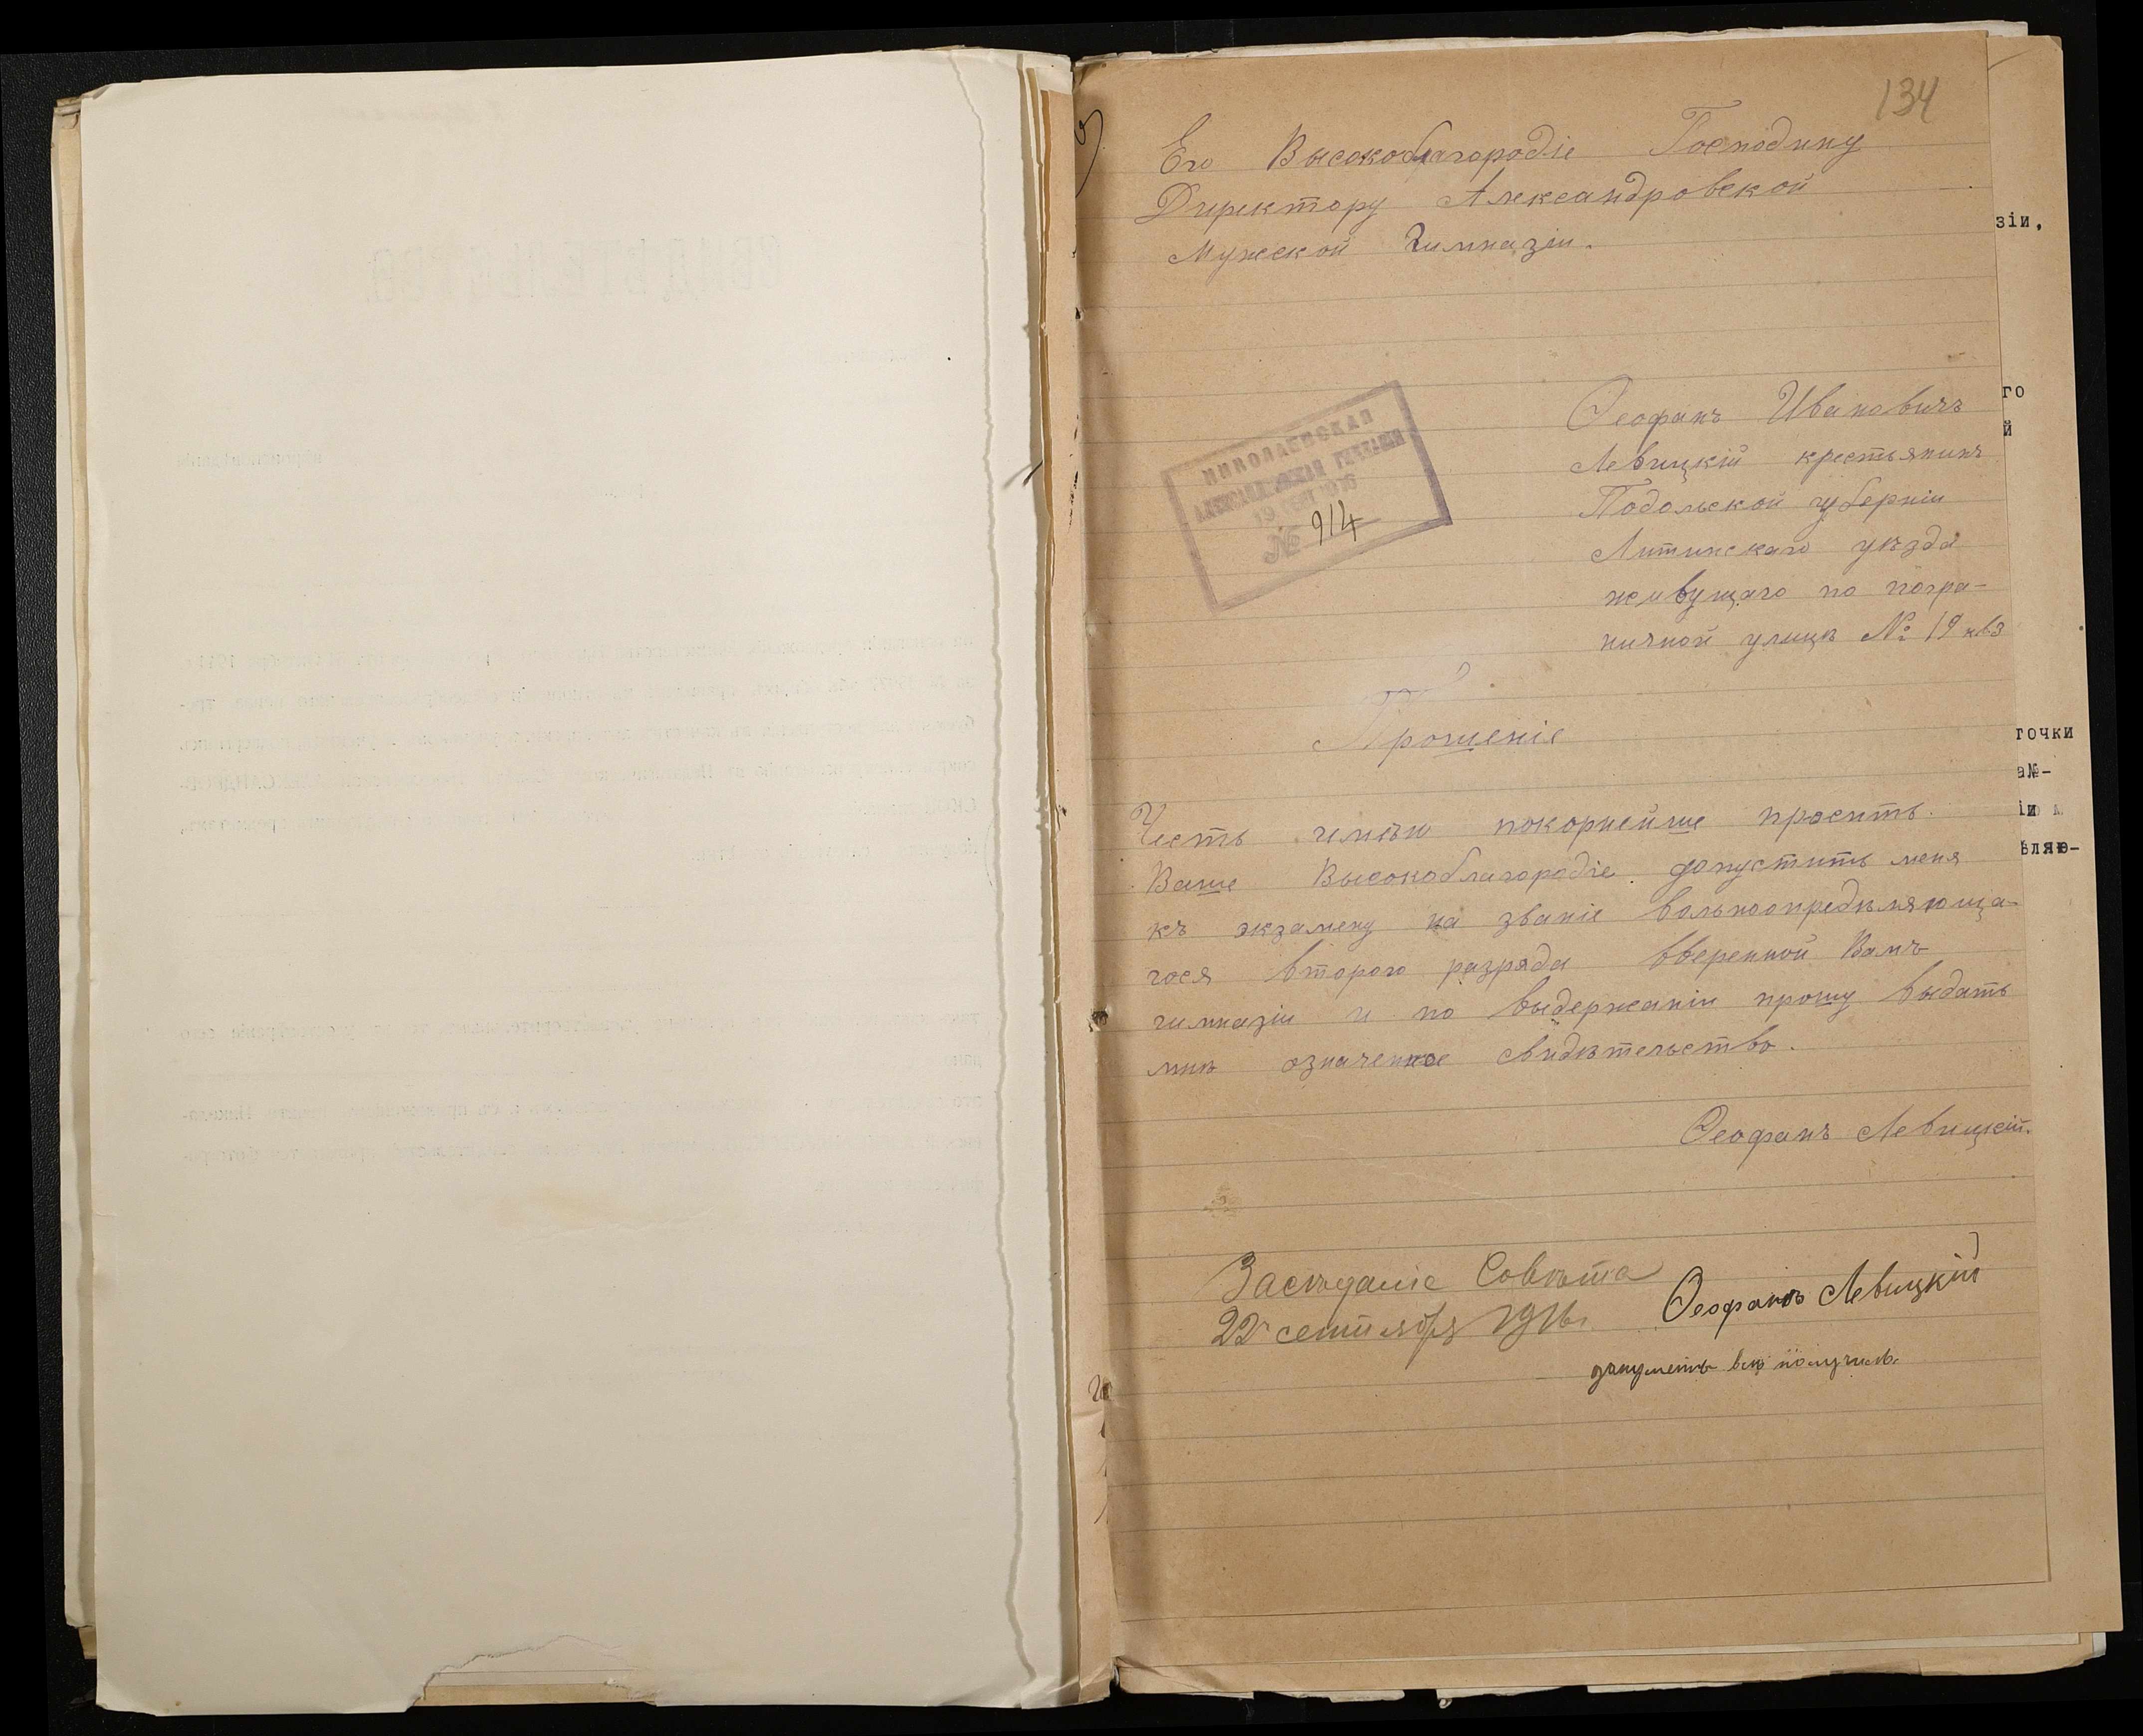 134
Его Высокоблагородіе Господину
Директору Александровской
Мужской Гимназіи.
НИКОЛАЕВСКАЯ
АЛЕКСАНДРОВСКАЯ ГИМНАЗІЯ
19 1916
№ 914
Ѳеофанъ Ивановичъ
Левицкій крестьянинъ
Подольской губерніи
Литинскаго уѣзда
живущаго по погра-
ничной улицѣ № 19 кв 3
Прошеніе
Честь имѣю покорнейше просить
Ваше Высокоблагородіе допустить меня
къ экзамену на званіе вольноопредѣляюща-
гося второго разряда вверенной Вамъ
гимназіи и по выдержаніи прошу выдать
мнѣ означенное свидѣтельство.
Ѳеофанъ Левицкій.
Засѣданіе Совѣта
22 сентября 1916 г.
Ѳеофанъ Левицкій
документъ всѣ получилъ.
зіи,
го
й
точки
а№-
іи
вляю-